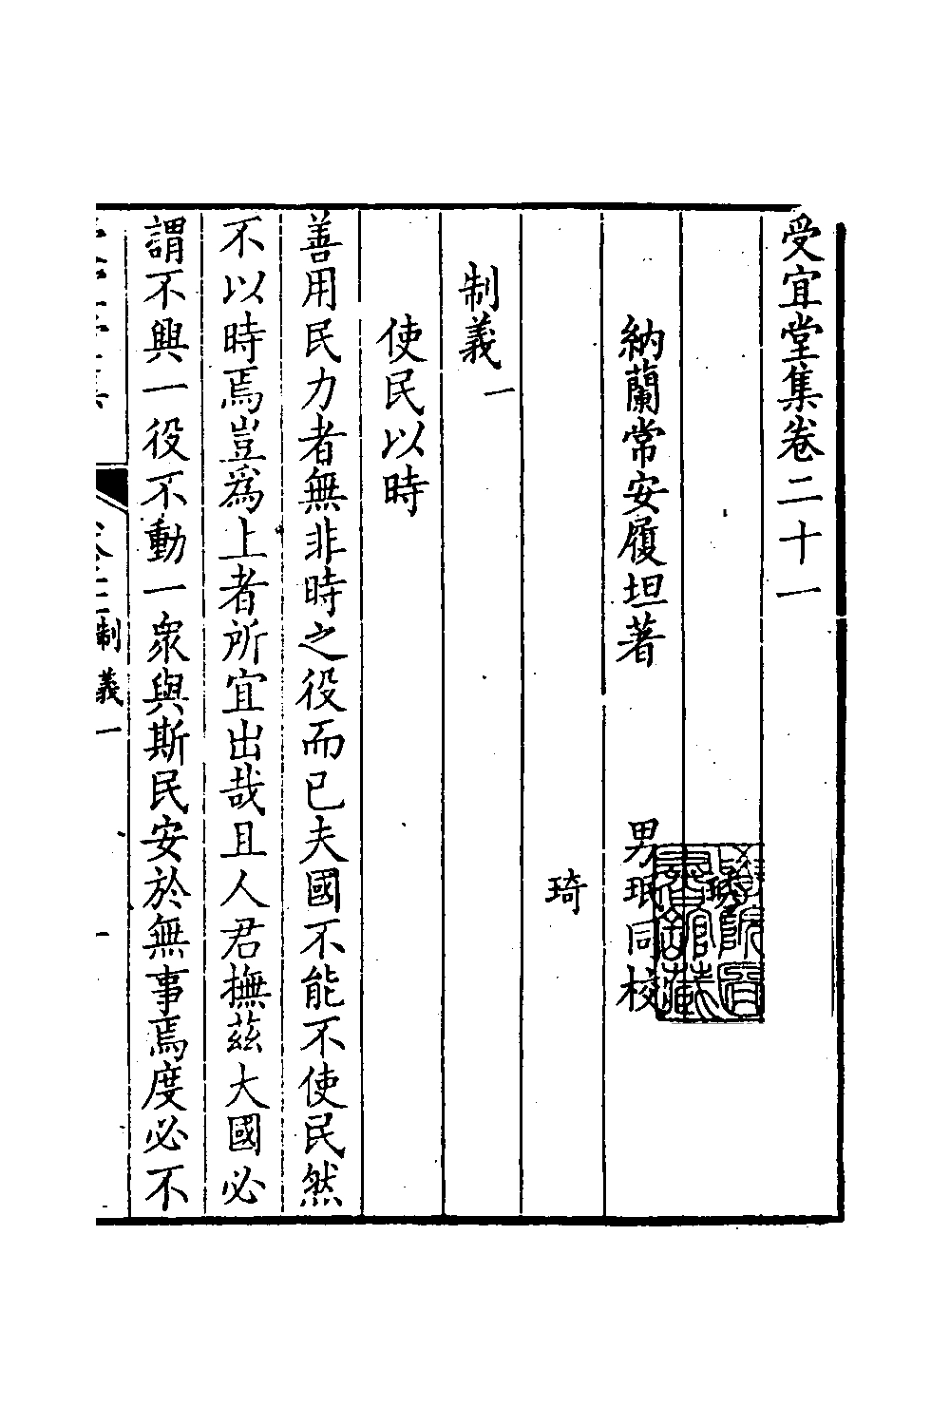 受宜堂集卷二十一
納蘭常安履坦著 男珉同校
琦
制義一
使民以時
善用民力者無非時之役而已夫國不能不使民然
不以時焉豈爲上者所宜出哉且人君撫茲大國必
謂不興一役不動一衆與斯民安於無事焉度必不
制義一